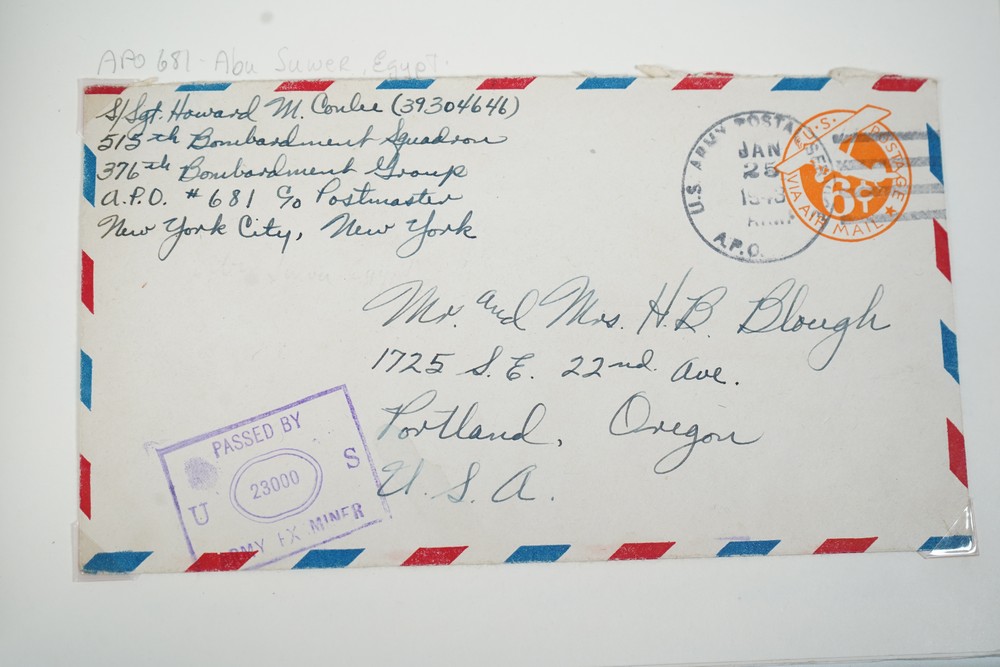 APO 681 - Abu Suwer, Egypt.
S/Sgt. Howard M. Conlee (39304646)
515th Bombardment Squadron
376th Bombardment Group
A.P.O. #681 c/o Postmaster
New York City, New York
U.S. ARMY POSTAL SER
JAN
25
A.P.O.
U.S. POSTAGE
6¢
VIA AIR MAIL
Mr. and Mrs. H.B. Blough
1725 S.E. 22nd Ave.
Portland, Oregon
U.S.A.
PASSED BY
U 23000 S
RMY EX MINER